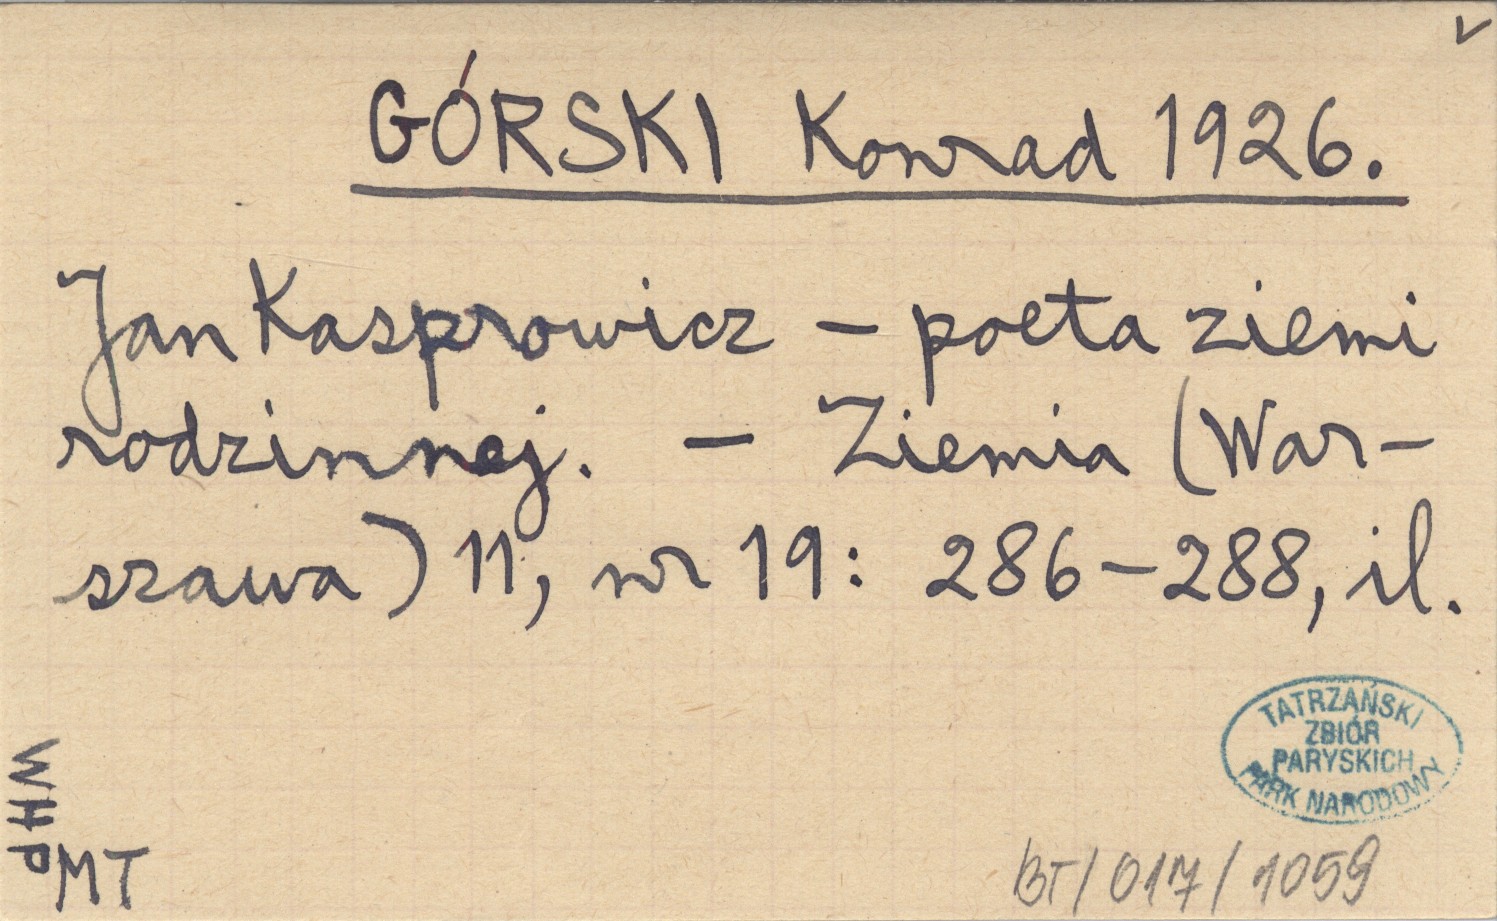 GÓRSKI Konrad 1926.
Jan Kasprowicz – poeta ziemi
rodzinnej. – Ziemia (War-
szawa) 11, nr 19: 286–288, il.
TATRZAŃSKI
ZBIÓR
PARYSKICH
PARK NARODOWY
WHP
MT
BT/017/1059